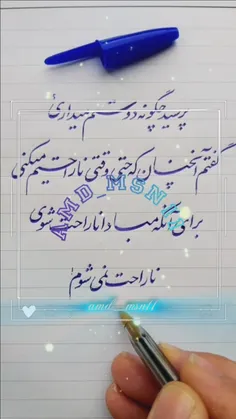 پرسید چگونه دوستم میداری؟
گفتم آنچنان که حتی وقتی ناراحتیم میکنی
برای آنکه مبادا ناراحت شوی
ناراحت نمی شوم
AMD_MSN
amd_msn11